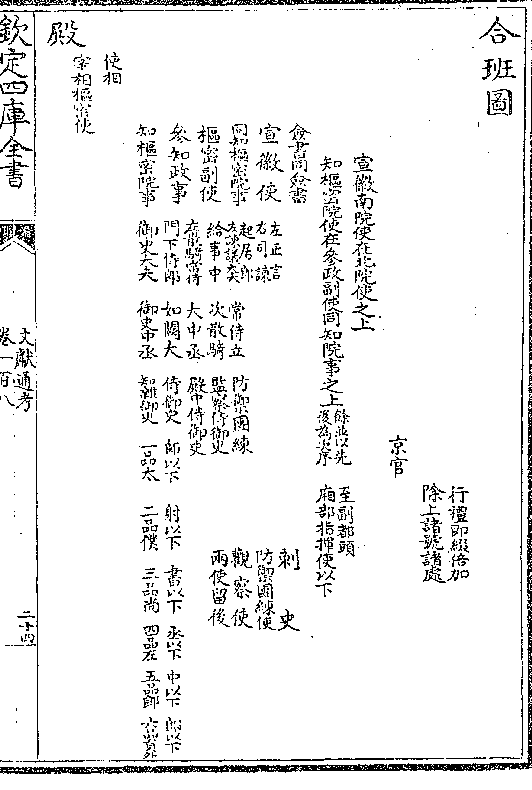 合班圖
行禮即綴倍加
除上諸號諸處
京官
宣徽南院使在北院使之上
知樞密院使在參政副使同知院事之上餘並以先後為次序
至副都頭
廂部指揮使以下
簽書同簽書
宣徽使
同知樞密院事
樞密副使
參知政事
知樞密院事
左正言
右司諫
起居郎
左諫議
給事中
左散騎常侍
門下侍郎
御史大夫
常侍立
次散騎
大中丞
如闕大
御史中丞
防禦團練
監察侍御史
殿中侍御史
侍御史
知雜御史
刺史
防禦團練使
觀察使
兩使留後
師以下
一品太
射以下
二品僕
書以下
三品尚
丞以下
四品左
中以下
五品郎
郎以下
六品員外
使相
宰相樞密使
殿
欽定四庫全書
文獻通考
卷一百八
二十四